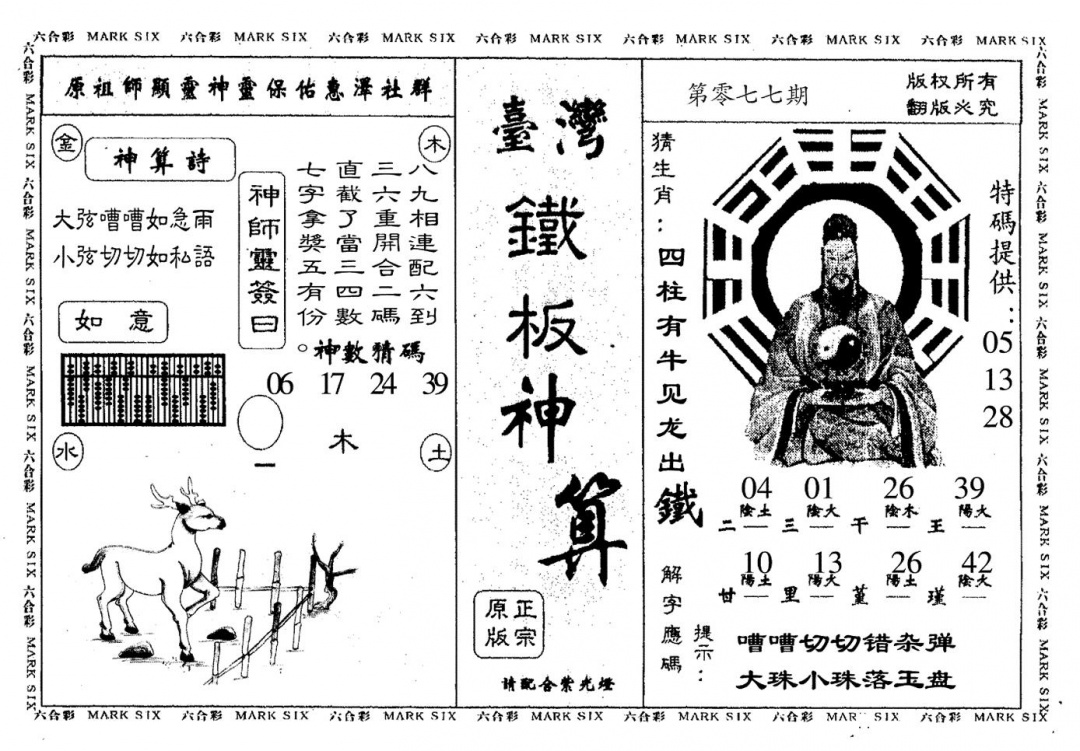 六合彩 MARK SIX 六合彩 MARK SIX 六合彩 MARK SIX 六合彩 MARK SIX 六合彩 MARK SIX 六合彩 MARK SIX 六合彩 MARK SIX
六合彩 MARK SIX 六合彩 MARK SIX 六合彩 MARK SIX 六合彩 MARK SIX 六合彩 MARK SIX
原祖師顯靈神靈保佑惠澤社群
金
木
神算詩
大弦嘈嘈如急雨
小弦切切如私語
如意
神師靈簽曰
八九相連配六到
三六重開合二碼
直截了當三四數
七字拿獎五有份。
神數猜碼
06 17 24 39
木
水
土
臺灣
鐵板神算
正宗
原版
請配合紫光燈
第零七七期
版权所有
翻版必究
猜生肖：四柱有牛见龙出鐵
特碼提供：
05
13
28
04 01 26 39
陰土 陰火 陰木 陽火
二 三 干 王
10 13 26 42
陽土 陽火 陽土 陰火
甘 里 堇 瑾
解字應碼
提示：
嘈嘈切切错杂弹
大珠小珠落玉盘
六合彩 MARK SIX 六合彩 MARK SIX 六合彩 MARK SIX 六合彩 MARK SIX 六合彩 MARK SIX
六合彩 MARK SIX 六合彩 MARK SIX 六合彩 MARK SIX 六合彩 MARK SIX 六合彩 MARK SIX 六合彩 MARK SIX 六合彩 MARK SIX